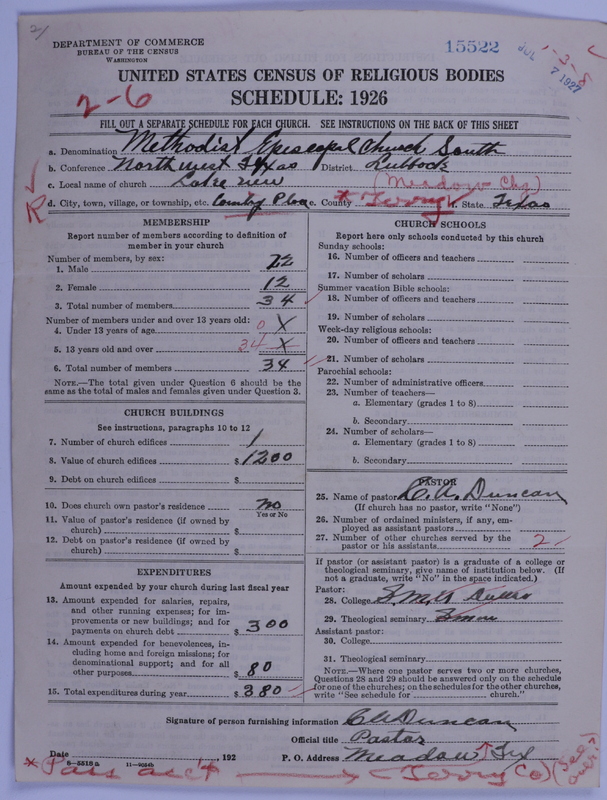 2/
DEPARTMENT OF COMMERCE
BUREAU OF THE CENSUS
WASHINGTON
15522
JUL 7 1927
1-3-8
UNITED STATES CENSUS OF RELIGIOUS BODIES
2-6
SCHEDULE: 1926
FILL OUT A SEPARATE SCHEDULE FOR EACH CHURCH. SEE INSTRUCTIONS ON THE BACK OF THIS SHEET
a. Denomination Methodist Episcopal Church South
b. Conference Northwest Texas District Lubbock
c. Local name of church Lakeview (Meadow Chg)
R d. City, town, village, or township, etc. Country Place e. County * Terry f. State Texas
MEMBERSHIP
Report number of members according to definition of member in your church
Number of members, by sex:
1. Male 22
2. Female 12
3. Total number of members 34
Number of members under and over 13 years old:
4. Under 13 years of age 0 X
5. 13 years old and over 34 X
6. Total number of members 34
NOTE.—The total given under Question 6 should be the same as the total of males and females given under Question 3.
CHURCH BUILDINGS
See instructions, paragraphs 10 to 12
7. Number of church edifices 1
8. Value of church edifices $ 1200
9. Debt on church edifices $
10. Does church own pastor's residence No
Yes or No
11. Value of pastor's residence (if owned by
church) $
12. Debt on pastor's residence (if owned by
church) $
EXPENDITURES
Amount expended by your church during last fiscal year
13. Amount expended for salaries, repairs,
and other running expenses; for im-
provements or new buildings; and for
payments on church debt $ 300
14. Amount expended for benevolences, in-
cluding home and foreign missions; for
denominational support; and for all
other purposes $ 80
15. Total expenditures during year $ 380
CHURCH SCHOOLS
Report here only schools conducted by this church
Sunday schools:
16. Number of officers and teachers
17. Number of scholars
Summer vacation Bible schools:
18. Number of officers and teachers
19. Number of scholars
Week-day religious schools:
20. Number of officers and teachers
21. Number of scholars
Parochial schools:
22. Number of administrative officers
23. Number of teachers—
a. Elementary (grades 1 to 8)
b. Secondary
24. Number of scholars—
a. Elementary (grades 1 to 8)
b. Secondary
PASTOR
25. Name of pastor C. A. Duncan
(If church has no pastor, write "None")
26. Number of ordained ministers, if any, em-
ployed as assistant pastors
27. Number of other churches served by the
pastor or his assistants 2
If pastor (or assistant pastor) is a graduate of a college or
theological seminary, give name of institution below. (If
not a graduate, write "No" in the space indicated.)
Pastor:
28. College S.M.U.
29. Theological seminary
Assistant pastor:
30. College
31. Theological seminary
NOTE.—Where one pastor serves two or more churches,
Questions 28 and 29 should be answered only on the schedule
for one of the churches; on the schedules for the other churches,
write "See schedule for church."
Signature of person furnishing information C A Duncan
Official title Pastor
Date , 192 P. O. Address Meadow Tex
8-5518a 11-9054b
* Pass acct Terry Co (See over)